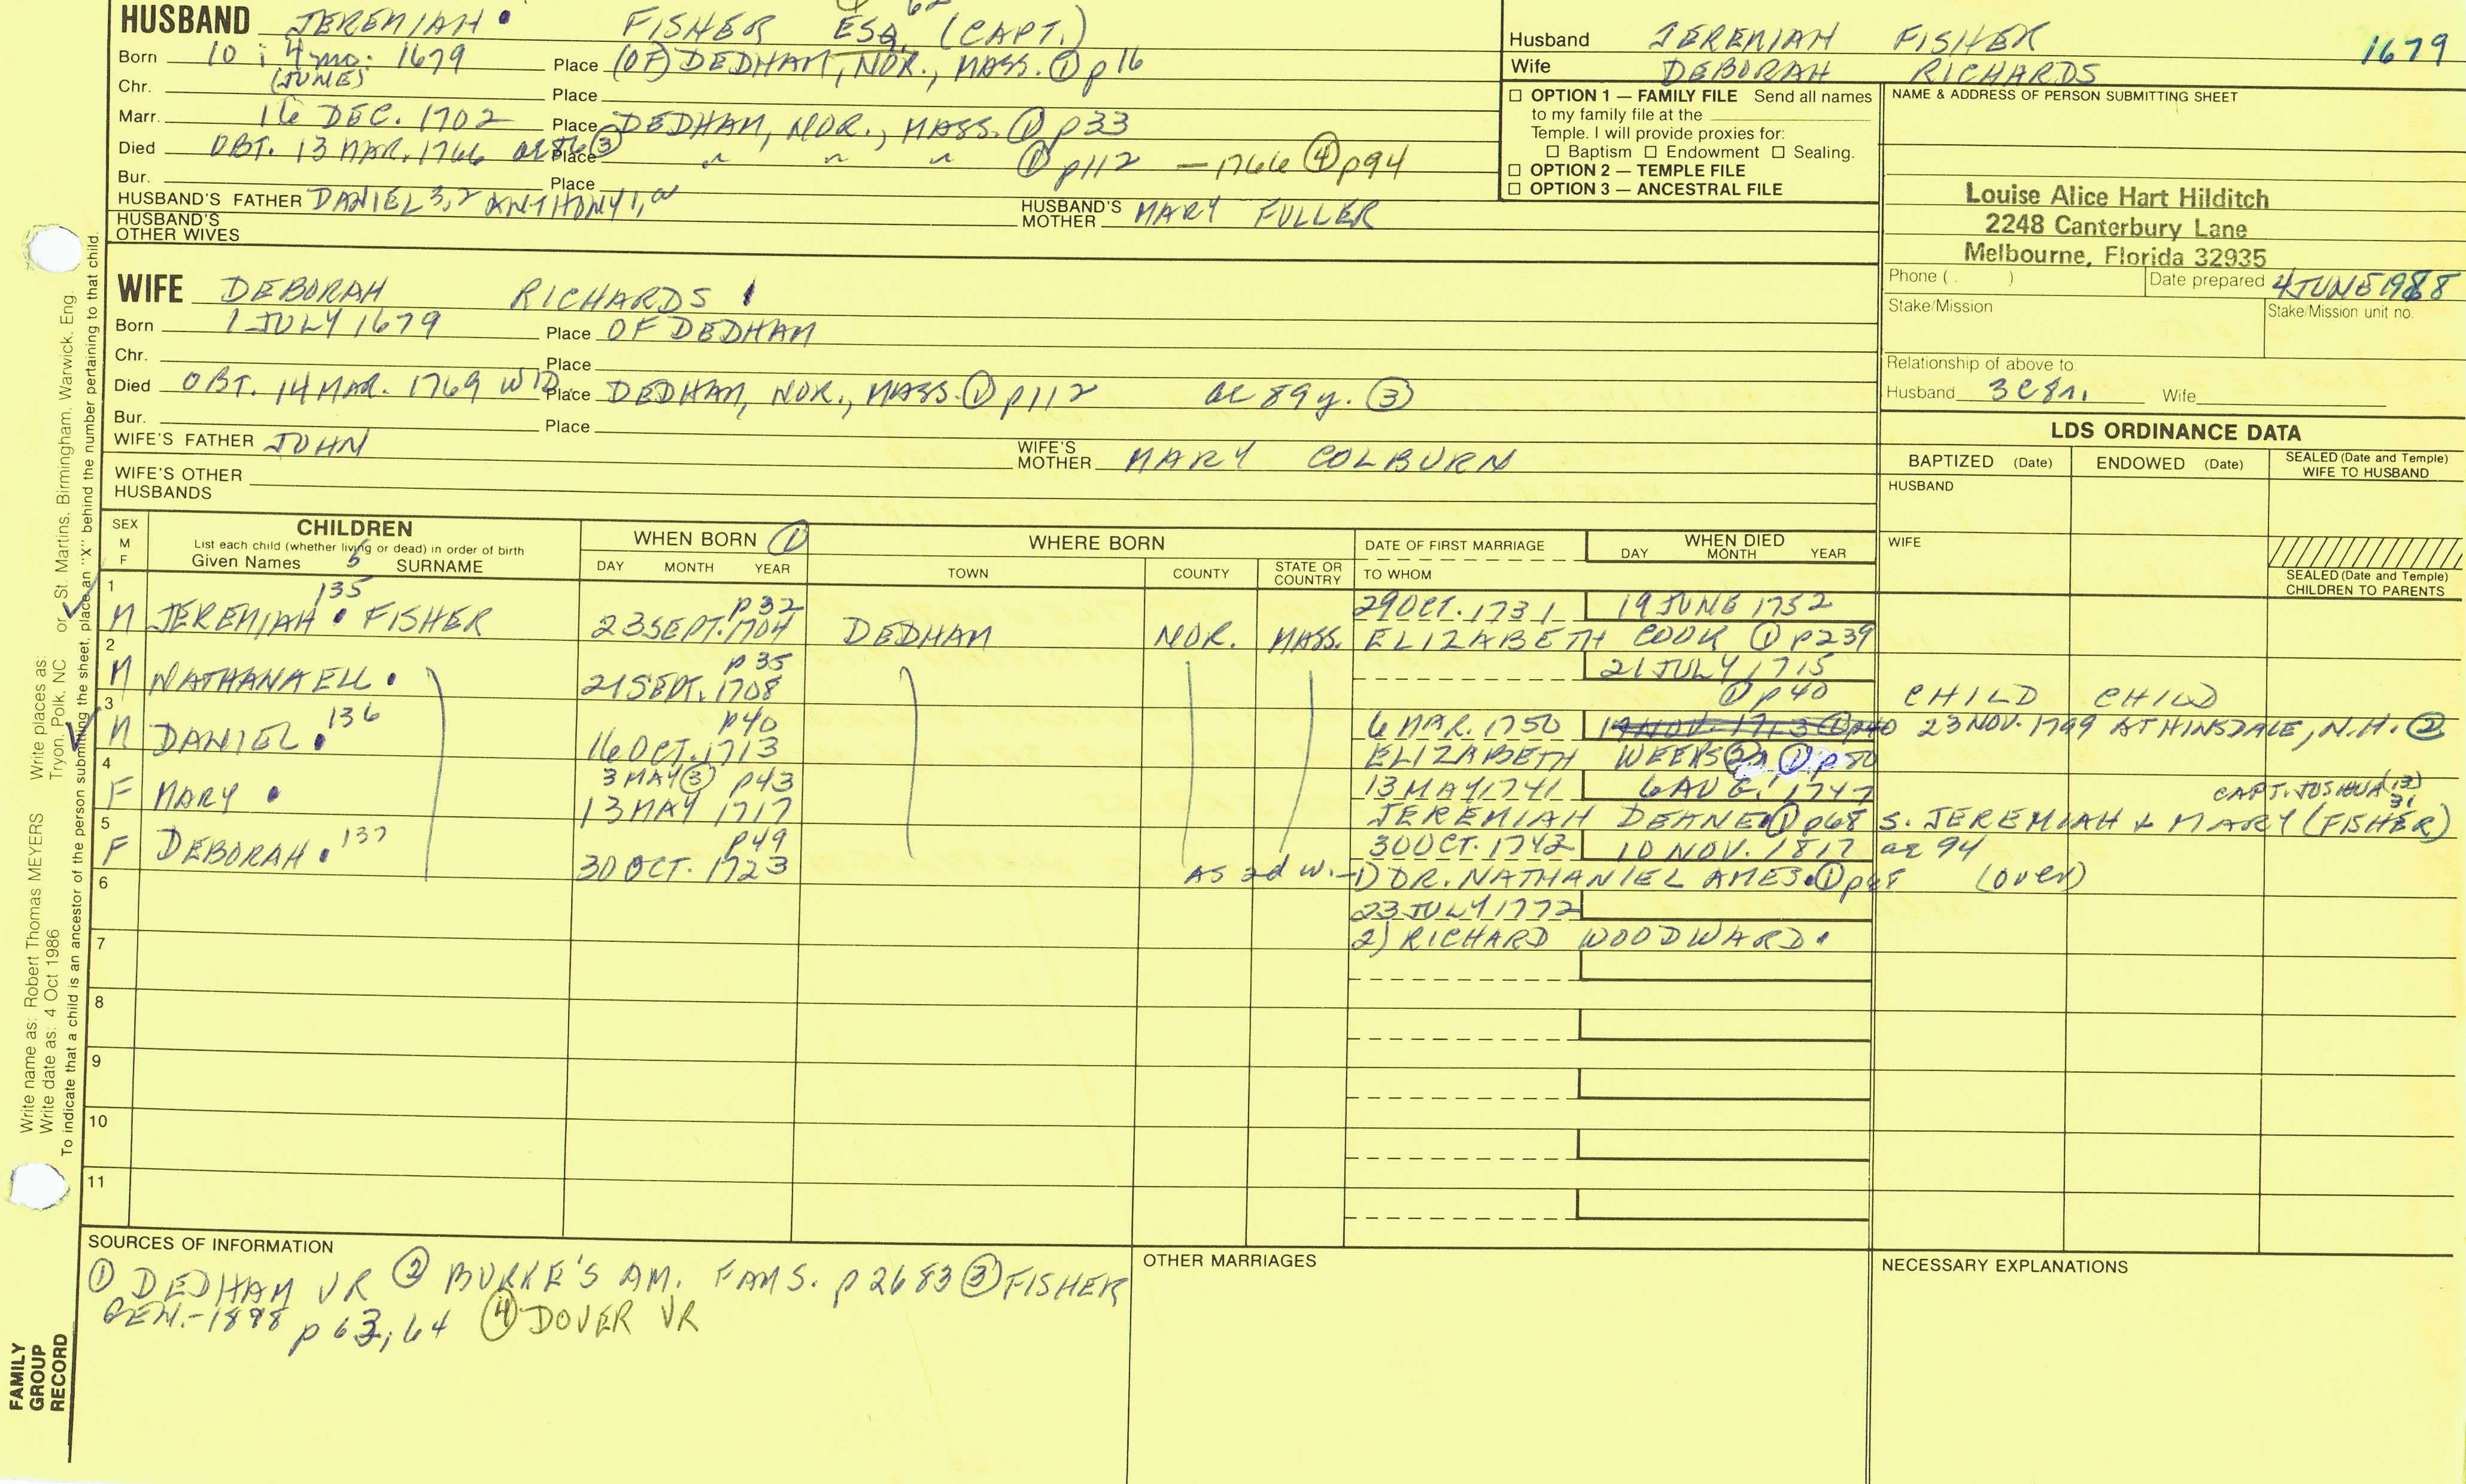 HUSBAND JEREMIAH • FISHER ESQ. (CAPT.)
Born 10 : 4 mo. 1679 Place (OF) DEDHAM, NOR., MASS. ① p16
(JUNE)
Chr. Place
Marr. 16 DEC. 1702 Place DEDHAM, NOR., MASS. ① p33
Died OBT. 13 MAR. 1766 ae 86 ③ Place " " " ① p112 — 1766 ④ p94
Bur. Place
HUSBAND'S FATHER DANIEL 3,2 ANTHONY 1, HUSBAND'S MOTHER MARY FULLER
HUSBAND'S OTHER WIVES
Husband JEREMIAH FISHER 1679
Wife DEBORAH RICHARDS
☐ OPTION 1 — FAMILY FILE Send all names
to my family file at the
Temple. I will provide proxies for:
☐ Baptism ☐ Endowment ☐ Sealing.
☐ OPTION 2 — TEMPLE FILE
☐ OPTION 3 — ANCESTRAL FILE
NAME & ADDRESS OF PERSON SUBMITTING SHEET
Louise Alice Hart Hilditch
2248 Canterbury Lane
Melbourne, Florida 32935
Phone ( ) Date prepared 4 JUNE 1988
Stake/Mission Stake/Mission unit no.
Relationship of above to:
Husband Wife
WIFE DEBORAH RICHARDS
Born 1 JULY 1679 Place OF DEDHAM
Chr. Place
Died OBT. 14 MAR. 1769 WID. Place DEDHAM, NOR., MASS. ① p112 ae 89 y. ③
Bur. Place
WIFE'S FATHER JOHN WIFE'S MOTHER MARY COLBURN
WIFE'S OTHER HUSBANDS
LDS ORDINANCE DATA
BAPTIZED (Date) ENDOWED (Date) SEALED (Date and Temple) WIFE TO HUSBAND
HUSBAND
WIFE
SEALED (Date and Temple) CHILDREN TO PARENTS
SEX M F CHILDREN
List each child (whether living or dead) in order of birth
Given Names 5 SURNAME
WHEN BORN ① DAY MONTH YEAR
WHERE BORN TOWN COUNTY STATE OR COUNTRY
DATE OF FIRST MARRIAGE TO WHOM
WHEN DIED DAY MONTH YEAR
1 135 p32 29 OCT. 1731 19 JUNE 1752
M JEREMIAH • FISHER 23 SEPT. 1704 DEDHAM NOR. MASS. ELIZABETH COOK ① p239
2 p35 21 JULY 1715
M NATHANAELL • 21 SEPT. 1708 ① p40 CHILD CHILD
3 136 p40 6 MAR. 1750 19 NOV. 1713 ① p40 23 NOV. 1799 AT HINSDALE, N.H. ②
M DANIEL • 16 OCT. 1713 ELIZABETH WEEKS ② ① p80
4 3 MAY ③ p43 13 MAY 1741 6 AUG. 1747 CAPT. JOSHUA
F MARY • 13 MAY 1717 JEREMIAH DEANE • ① p68 S. JEREMIAH & MARY (FISHER)
5 137 p49 30 OCT. 1742 10 NOV. 1817 ae 94
F DEBORAH • 30 OCT. 1723 AS 2d w. – 1) DR. NATHANIEL AMES • ① p68 (over)
6 23 JULY 1772
7 2) RICHARD WOODWARD •
8
9
10
11
SOURCES OF INFORMATION
① DEDHAM VR ② BURKE'S AM. FAMS. p 2683 ③ FISHER
GEN. – 1898 p 63, 64 ④ DOVER VR
OTHER MARRIAGES
NECESSARY EXPLANATIONS
Write name as: Robert Thomas MEYERS Write places as: or St. Martins, Birmingham, Warwick, Eng.
Write date as: 4 Oct 1986 Tryon, Polk, NC
To indicate that a child is an ancestor of the person submitting the sheet, place an "X" behind the number pertaining to that child.
FAMILY GROUP RECORD